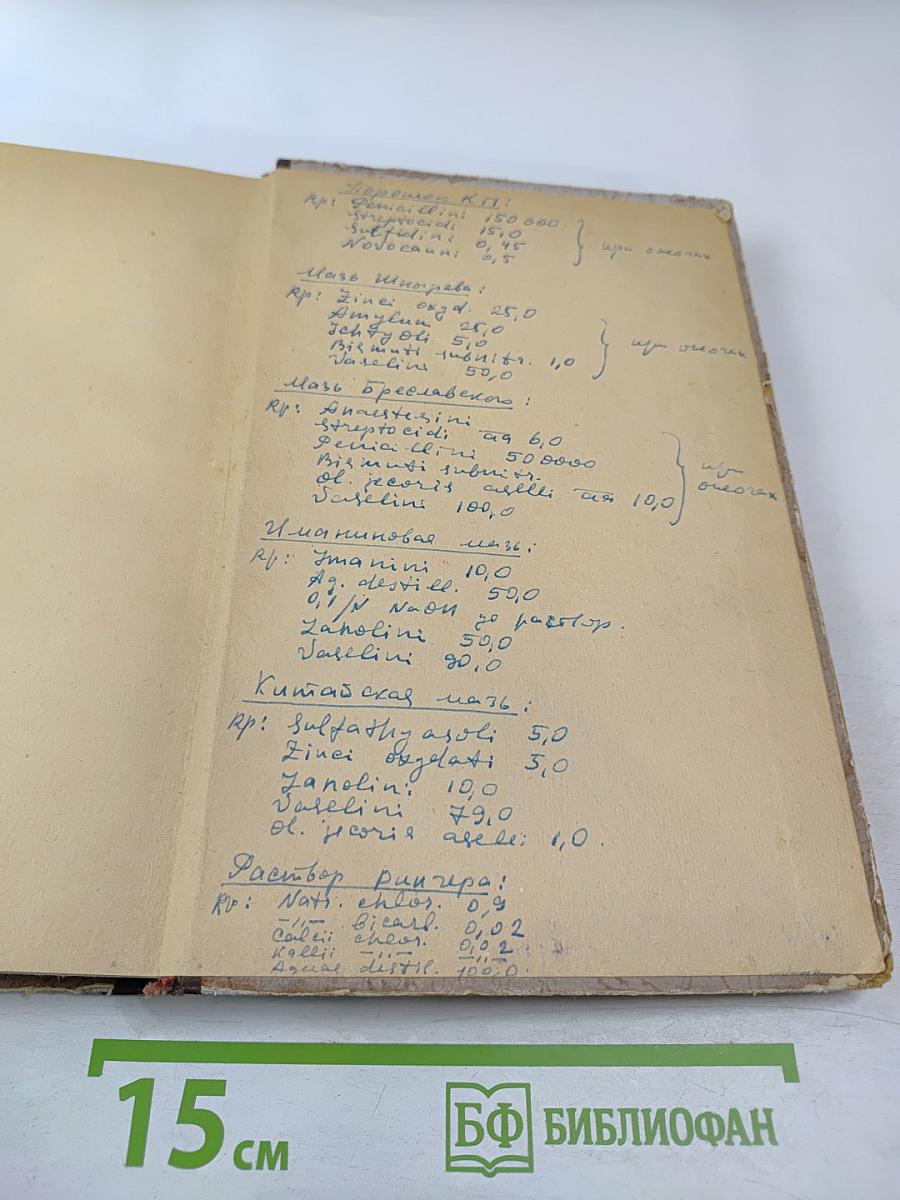 Порошок К.П.:
Rp: Penicillini 150 000
Streptocidi 15,0
Sulfidini 0,45
Novocaini 0,5
при ожогах
Мазь Шнырева:
Rp: Zinci oxyd. 25,0
Amylum 25,0
Ichtyoli 5,0
Bismuti subnitr. 1,0
Vaselini 50,0
при ожогах
Мазь Бреславского:
Rp: Anaestesini
Streptocidi aa 6,0
Penicillini 500000
Bismuti subnitr.
Ol. jecoris aselli aa 10,0
Vaselini 100,0
при
ожогах
Иманиновая мазь:
Rp: Imanini 10,0
Ag. destill. 50,0
0,1/N NaOH до раствор.
Lanolini 50,0
Vaselini 90,0
Китайская мазь:
Rp: Sulfathyasoli 5,0
Zinci oxydati 5,0
Lanolini 10,0
Vaselini 79,0
Ol. jecoris aselli 1,0.
Раствор Рингера:
Rp: Natr. chlor. 0,9
—„— bicarb. 0,02
Calcii chlor. 0,02
Kallii —„— —„—
Aquae destil. 100,0
15 см
БФ БИБЛИОФАН